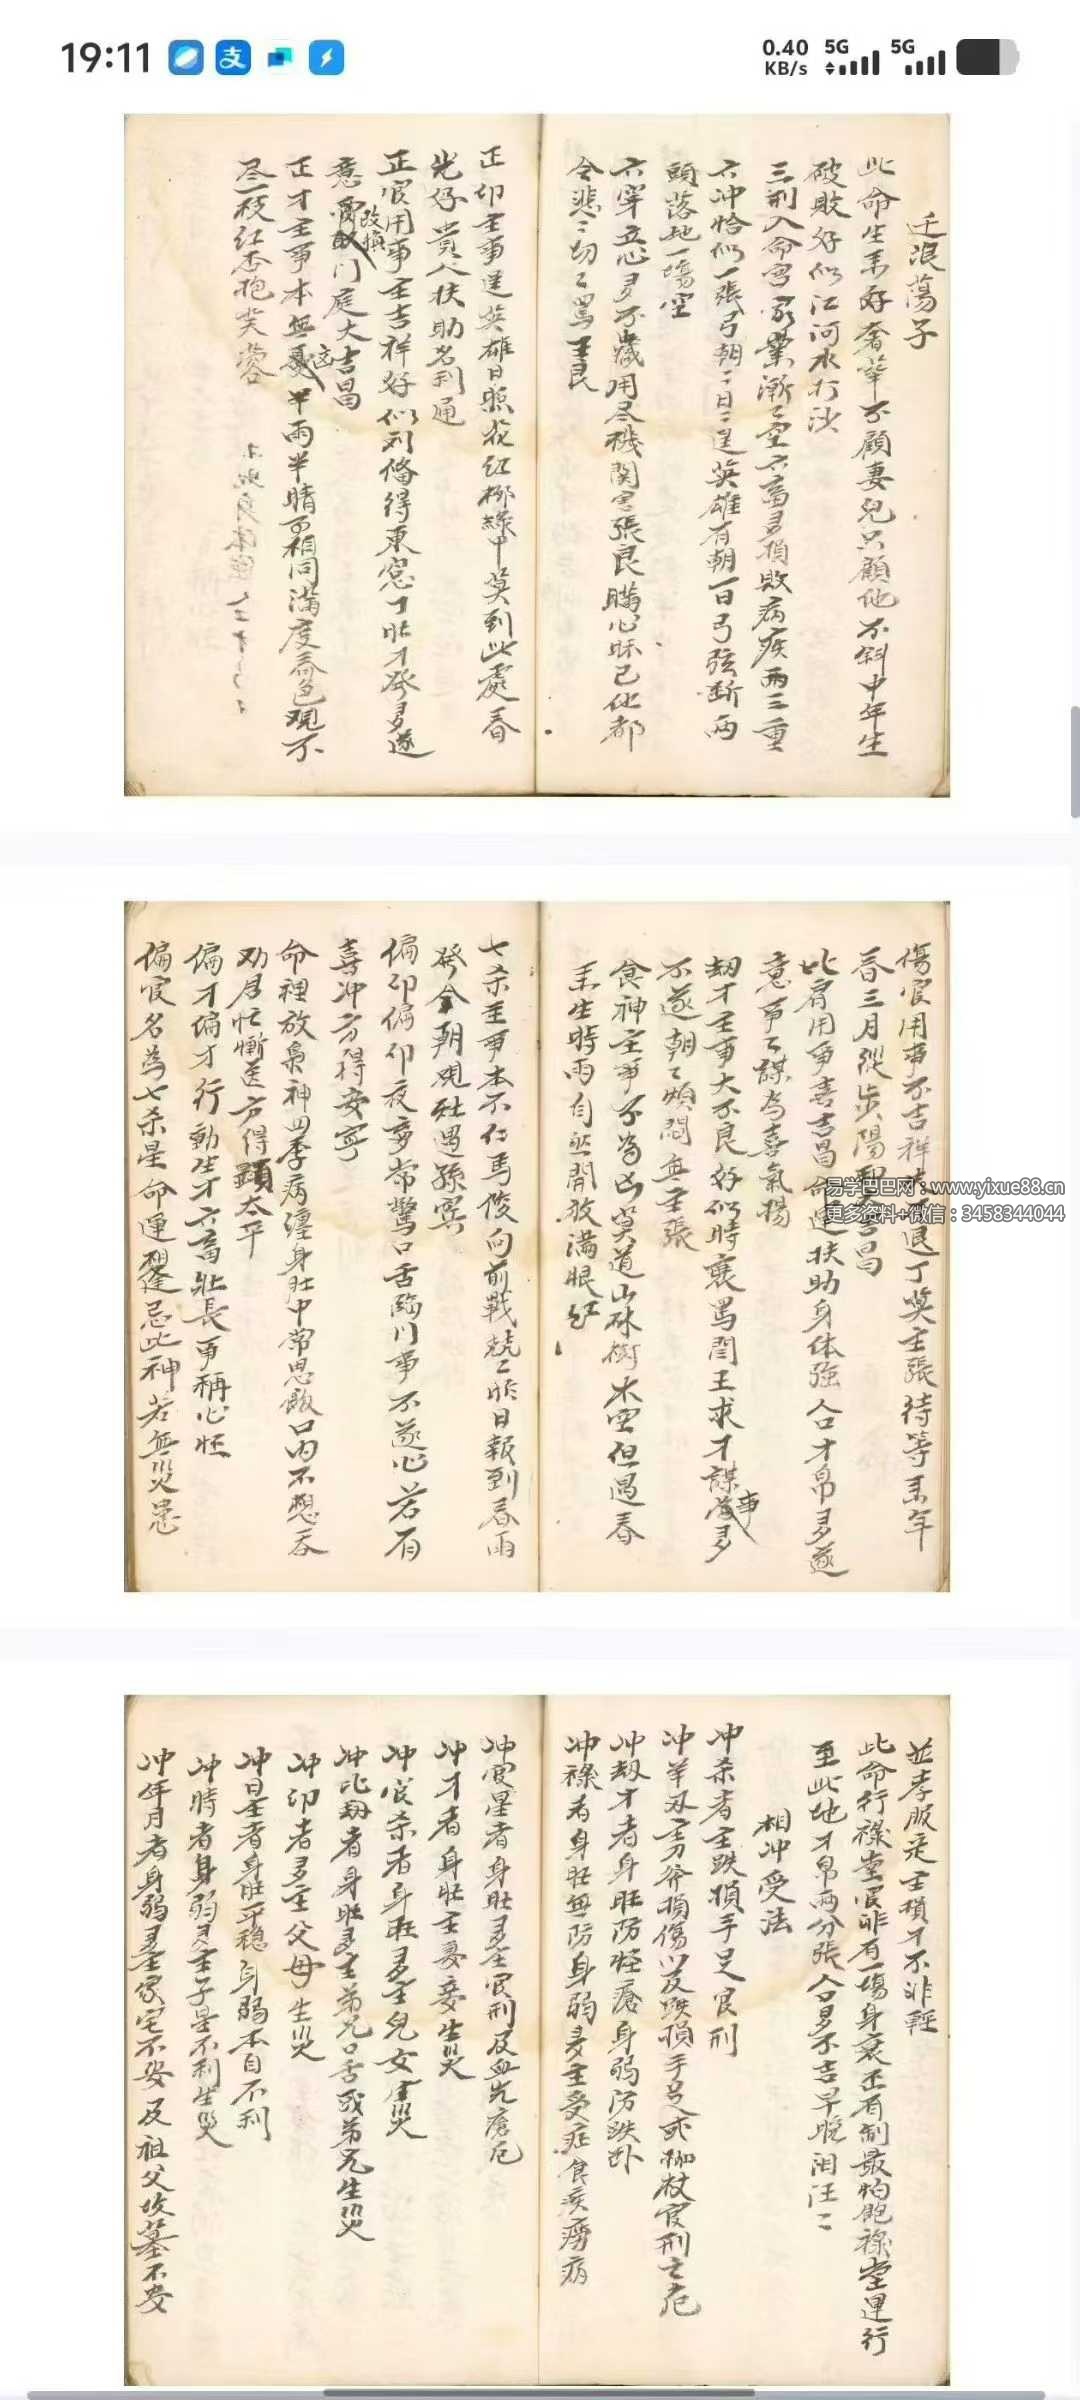 19:11
0.40 KB/s 5G 5G
迁浪蕩子
此命生来好奢華不顧妻兒只顧他不斜中年生
破敗好似江河水打沙
三刑入命宫家業漸〻空六畜多損敗病疾兩三重
六冲恰似一張弓朝〻日〻逞英雄有朝一日弓弦断两
頭落地一塲空
六穿立心多不藏用尽機関害張良瞒心昧己他都
令悲〻切〻罵王良
正卯主事逞英雄日照花红柳綠中莫到此處春
光好貴人扶助名利通
正官用事主吉祥好似刘俻得東窓丁旺才發多遂
意改換门庭大吉昌
正才主事本無半雨半晴不相同满度春色观不
尽一枝红杏抱芙蓉
傷官用事不吉祥退丁莫主張待等来年
春三月從步陽昌
比肩用事喜吉昌命運扶助身体強人口才帛多遂
意事〻謀为喜氣揚
刼才主事大不良好似時衰罵閻王求才謀事多
不遂朝〻煩悶無主張
食神主事不为凶莫道山林樹木空但遇春
来生時雨自然開放满眼红
七杀主事本不仁馬俊向前戰兢〻昨日報到春雨
發今朝观灶遇孫賓
偏卯偏卯夜夢常驚口舌臨门事不遂心若有
喜冲方得安寧
命裡放梟神四季病纏身肚中常思飯口内不想吞
劝君忙慚送方得顯太平
偏才偏才行動生才六畜壯長事稱心怀
偏官名為七杀星命運相逢忌此神若無災患
易学巴巴网：www.yixue88.cn
更多资料+微信：3458344044
並孝服定主損才不非輕
此命行禄堂官非有一塲身衰还有制最怕飽禄堂運行
至此地才帛两分張人口多不吉早晚闲汪〻
相冲受法
冲杀者主跌損手足官刑
冲羊刃主刀斧損傷以及跌損手足或枷杖官刑之危
冲刼才者身旺防怪瘡身弱防跌卧
冲禄者身旺無防身弱多主受症食疾痨病
冲官星者身旺多主官刑及血光瘡厄
冲才者身旺主妻妾生災
冲官杀者身旺多主兒女生災
冲比刼者身旺多主弟兄口舌或弟兄生災
冲卯者多主父母生災
冲日主者身旺平稳身弱本自不利
冲時者身弱多主子星不利生災
冲年月者身弱多主家宅不安及祖父坟墓不安